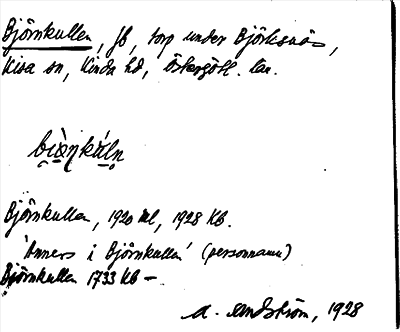 Björnkullen, fb, torp under Björksnäs,
Kisa sn, Kinda hd, Östergötl. län.
Björnkulla, 1920 Ml, 1928 Kb.
'Anners i Björnkulla' (personnamn)
Björnkulla 1733 Kb –
A. Sandström, 1928